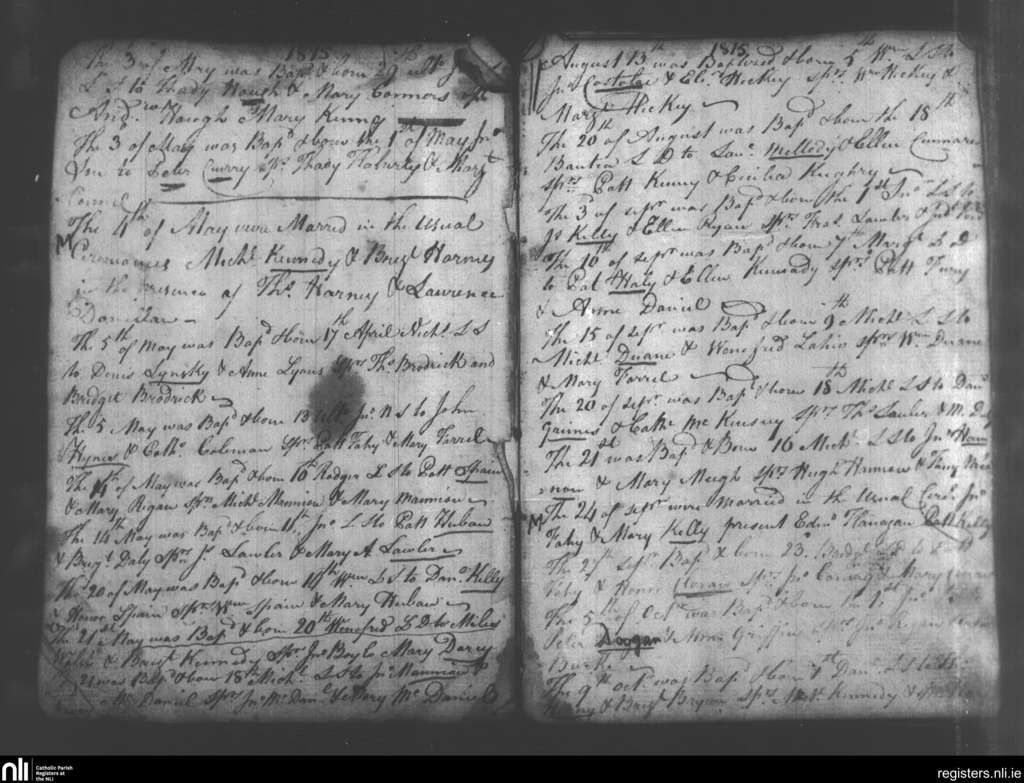 1815
The 3 of May was Bapd & born 29th ult
L S to Thady Hough & Mary Connors sprs
Andrw Haugh & Mary Kenny
The 3d of May was Bapd & born the 1st of May Jno
to Peter Curry Sprs Thady Flaherty & Margt
Connel
The 4th of May were Married in the Usual
M Ceremonies Michl Kennedy & Bridgt Harney
in the presence of Thos Harney & Lawrence
Donnellan
The 5th of May was Bapd & born 17th April Michl L S
to Denis Lynsky & Anne Lyons Sprs Thos Brodrick and
Bridget Brodrick
The 5 May was Bapd & born 13 ult Jno N S to John
Hynes & Cathe Coleman Sprs Patt Fahy & Mary Farrel
The 11th of May was Bapd & born 10th Rodger L S to Patt Spain
& Mary Rigan Sprs Michl Mannion & Mary Mannion
The 14th May was Bapd & born 11th Jno L S to Patt Huban
& Bridgt Daly Sprs Js Lawler & Mary A Lawler
The 20 of May was Bapd & born Wm L S to Danl Kelly
& Honor Spain Sprs Wm Spain & Mary Huban
The 21st May was Bapd & born 20th Winefred L D to Miles
& Bridgt Kennedy Sprs Jno Boyle Mary Darcy
21 was Bapd & born 18th Michl L S to Jno Mannion
Mc Daniel Sprs Jno Mc Danl & Mary Mc Daniel
1815
August 13th was Baptized & born 5th Wm L S to
Js Costeloe & Elir Hickey sprs Wm Hickey &
Margt Hickey
The 20th of August was Bapd & born the 18th
L D to Laue Melledy & Ellen Cunnare
sprs Patt Kenny & Cicilia Kughry
The 3d of sepr was Bapd & born the 1st Jno L S to
Js Kelly & Ellen Ryan Sprs Fras Lawler &
The 10th of sepr was Bapd & born 7th Margt L D
to Pat Haly & Ellen Kennady sprs Patt
& Anne Daniel
The 15 of sepr was Bapd & born 9th Michl L S to
Michl Duane & Wenefred Lahis sprs Wm Duane
& Mary Farrel
The 20 of sepr was Bapd & born 18th Michl L S to Danl
Grimes & Cathe Mc Kinsey sprs Thos Lawler & M Daly
The 21st was Bapd & Born 16 Michl L S to Jno
& Mary Meigh sprs Hugh
M The 24 of sepr were Married in the Usual Cere Jno
Fahy & Mary Kelly present Edmd Flanagan Patt Kelly
The 27th sepr Bapd & born 23 Bridgt L D to Patt
& Honor sprs Jno & Mary
The 5th of Octr was Bapd & born 1st Jno
Peter Doogan & Mary Griffin sprs Jno
Burke
The 9th octr was Bapd & born 7 Danl L S to
& Bridgt sprs Kennedy
nli Catholic Parish
Registers at
the NLI
registers.nli.ie